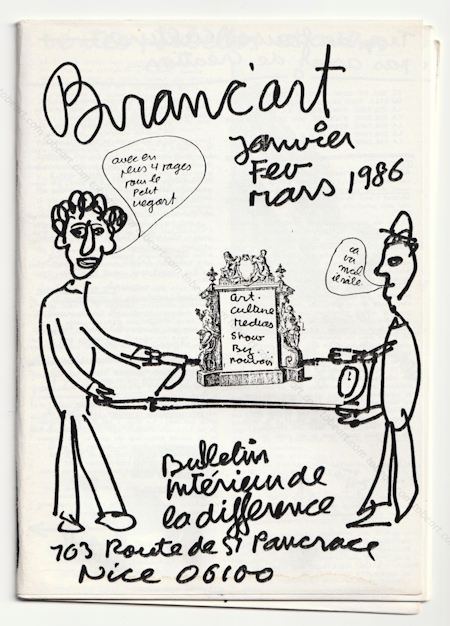 Branc'art
Janvier
Fev
Mars 1986
avec en
plus 4 pages
pour le
Petit
ça
va
mal
art.
culture
medias
show
By.
Pouvoir
Bulletin
intérieur de
la différence
103 Route de St Pancrace
Nice 06100